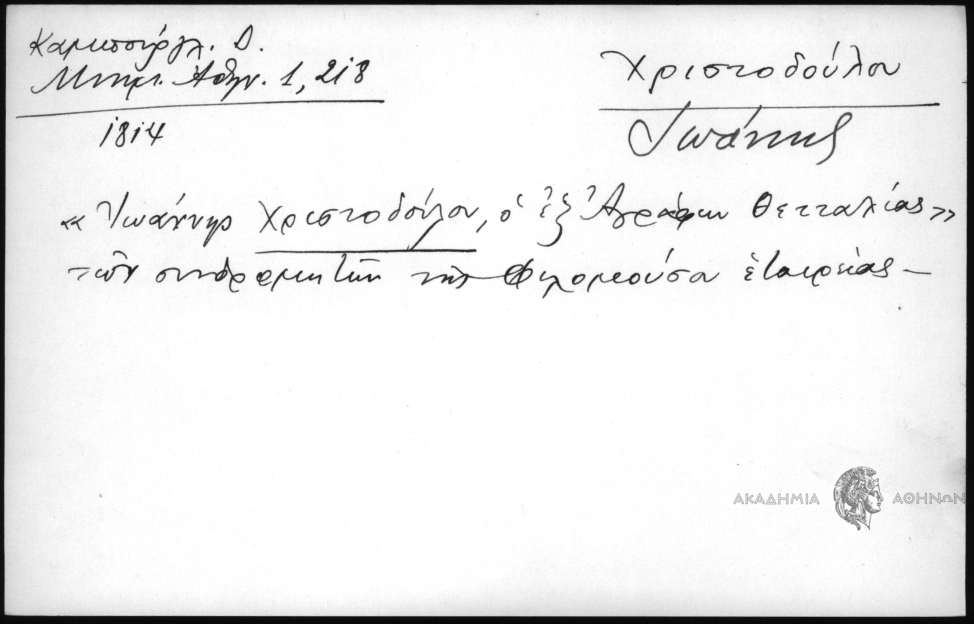 Καμπούρογλ. Δ.
Μνημ. Αθην. 1, 218
1814
Χριστοδούλου
Ιωάννης
« Ἰωάννης Χριστοδούλου, ὁ ἐξ Ἀγράφων Θετταλίας »
τῶν συνδρομητῶν τῆς Φιλομούσου ἑταιρείας –
ΑΚΑΔΗΜΙΑ ΑΘΗΝΩΝ